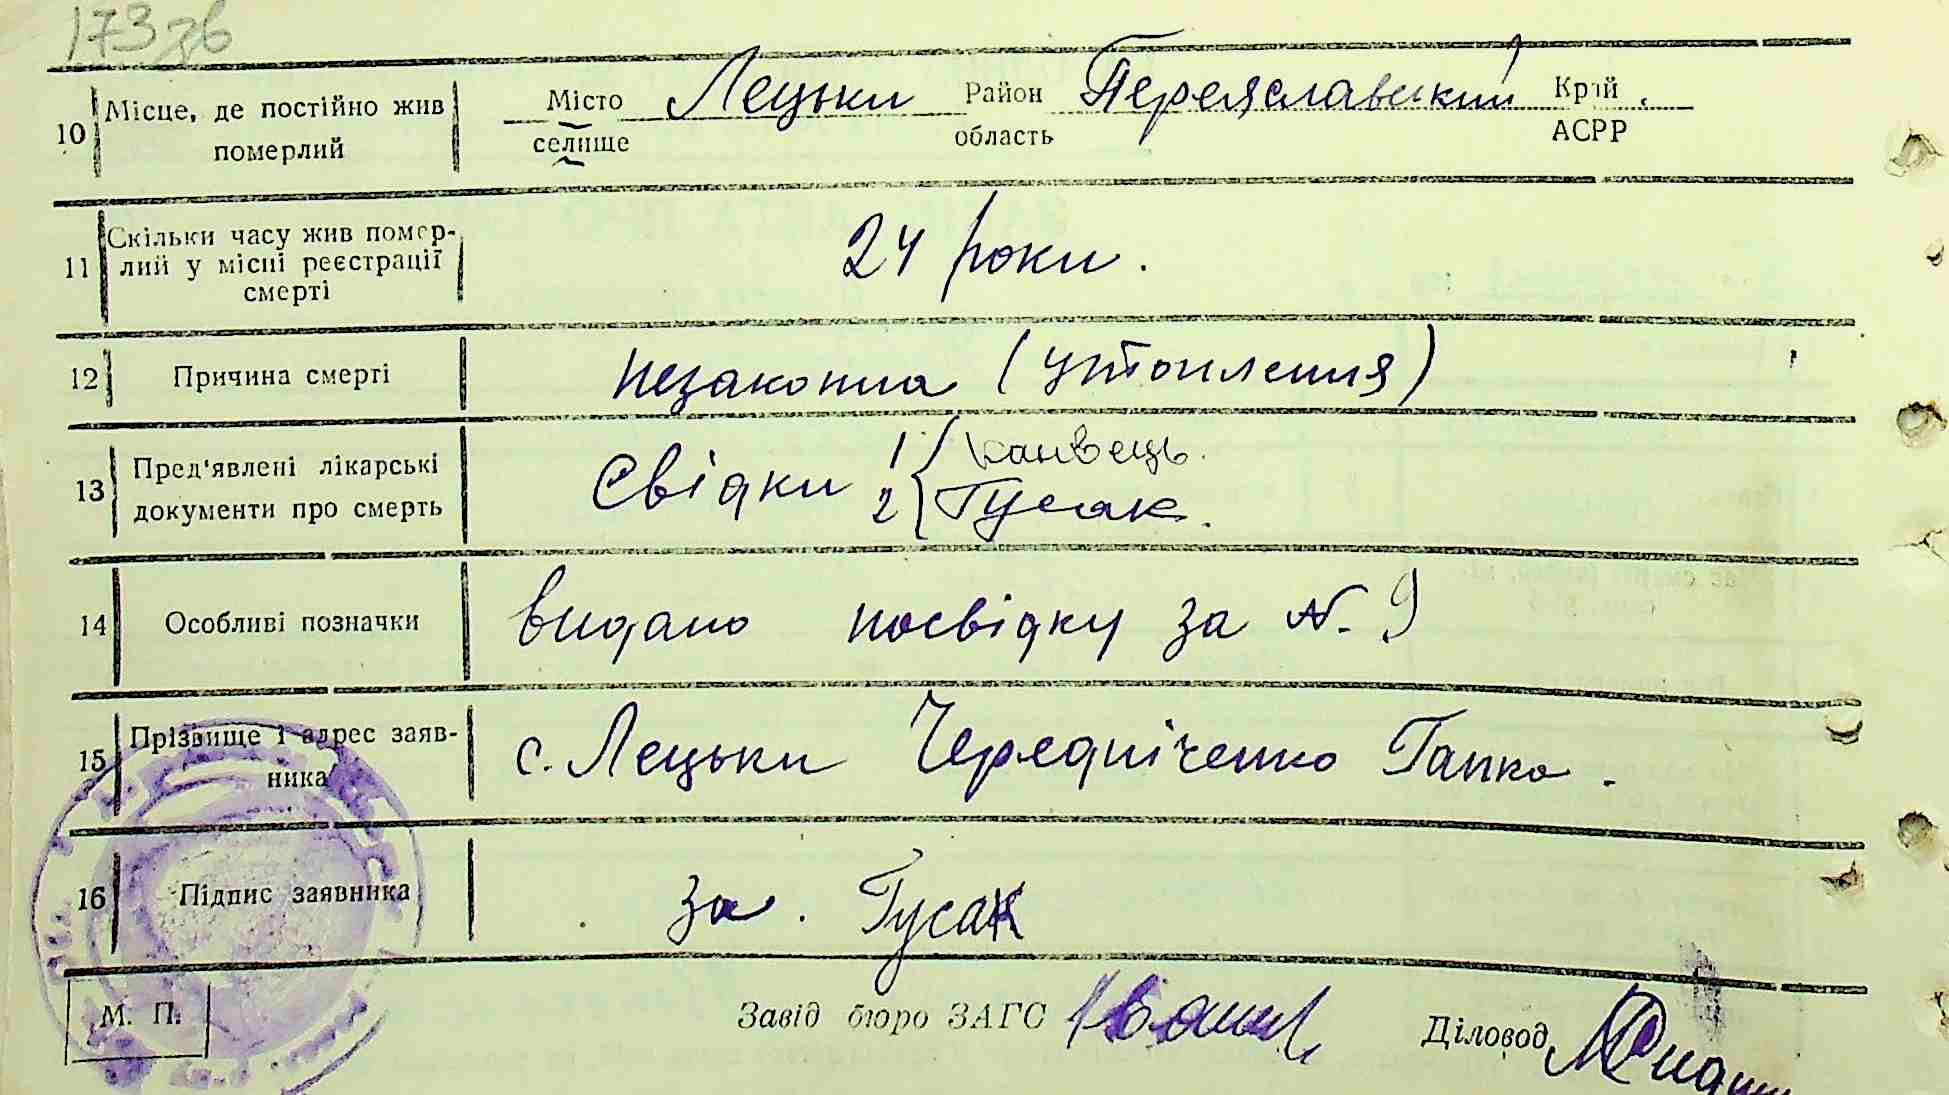 173 зв
10 Місце, де постійно жив померлий
Місто селище Лецьки Район область Переяславский Край АСРР
11 Скільки часу жив помер-
лий у місці реєстрації
смерті
24 роки.
12 Причина смерті незаконна (утоплення)
13 Пред'явлені лікарські
документи про смерть
Свідки 1 Канвець.
2 Гусак.
14 Особливі позначки видано посвідку за №. 9
15 Прізвище і адрес заяв-
ника
с. Лецьки Чередніченко Гапка.
16 Підпис заявника за. Гусак
М. П.
Завід бюро ЗАГС
Діловод